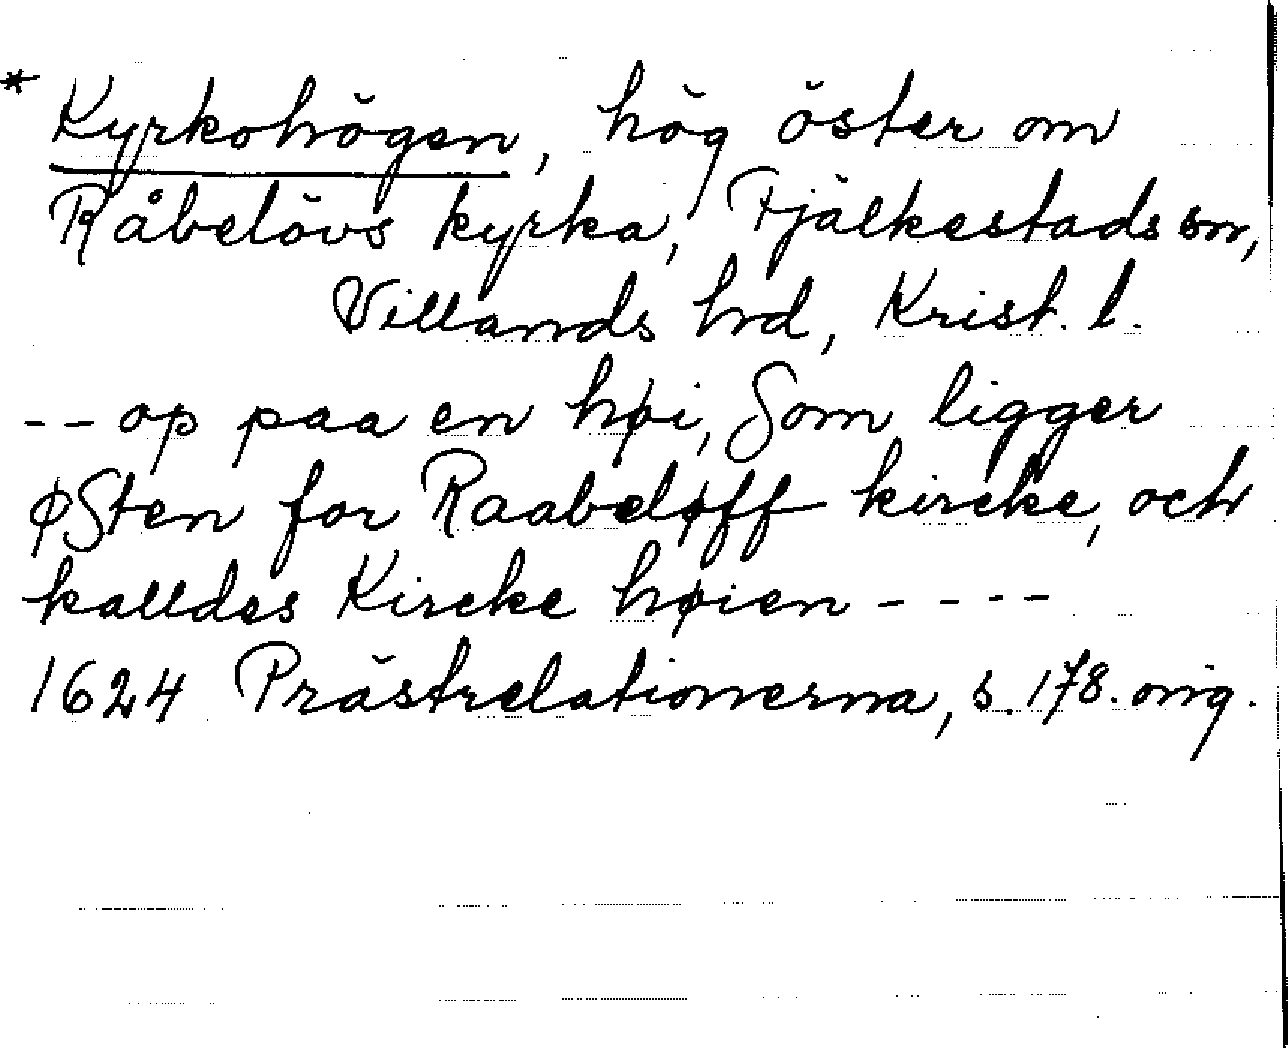 * Kyrkohögen, hög öster om
Råbelövs kyrka, Fjälkestads sn,
Villands hd, Krist. l.
-- op paa en høi, Som ligger
øSten for Raabeløff kircke, och
kalldes Kircke høien ----
1624 Prästrelationerna, s. 178. orig.